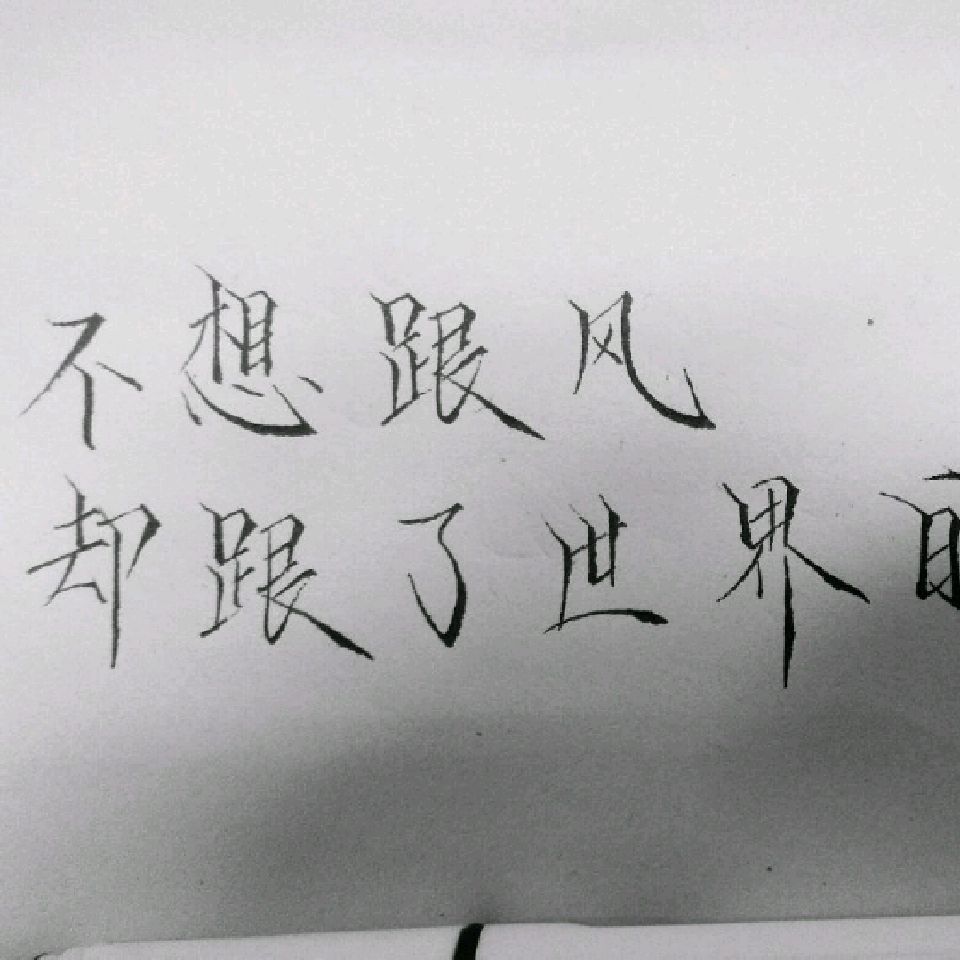 不想跟风
却跟了世界